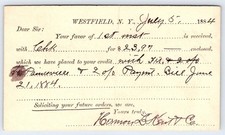 WESTFIELD, N. Y., July 5 1884
Dear Sir:
Your favor of 1st inst is received,
with Chk for $23.97
which we have placed to your credit, with
Painesville & Paymt. Bill June
21, 1884.
Soliciting your future orders, we are,
Yours truly,